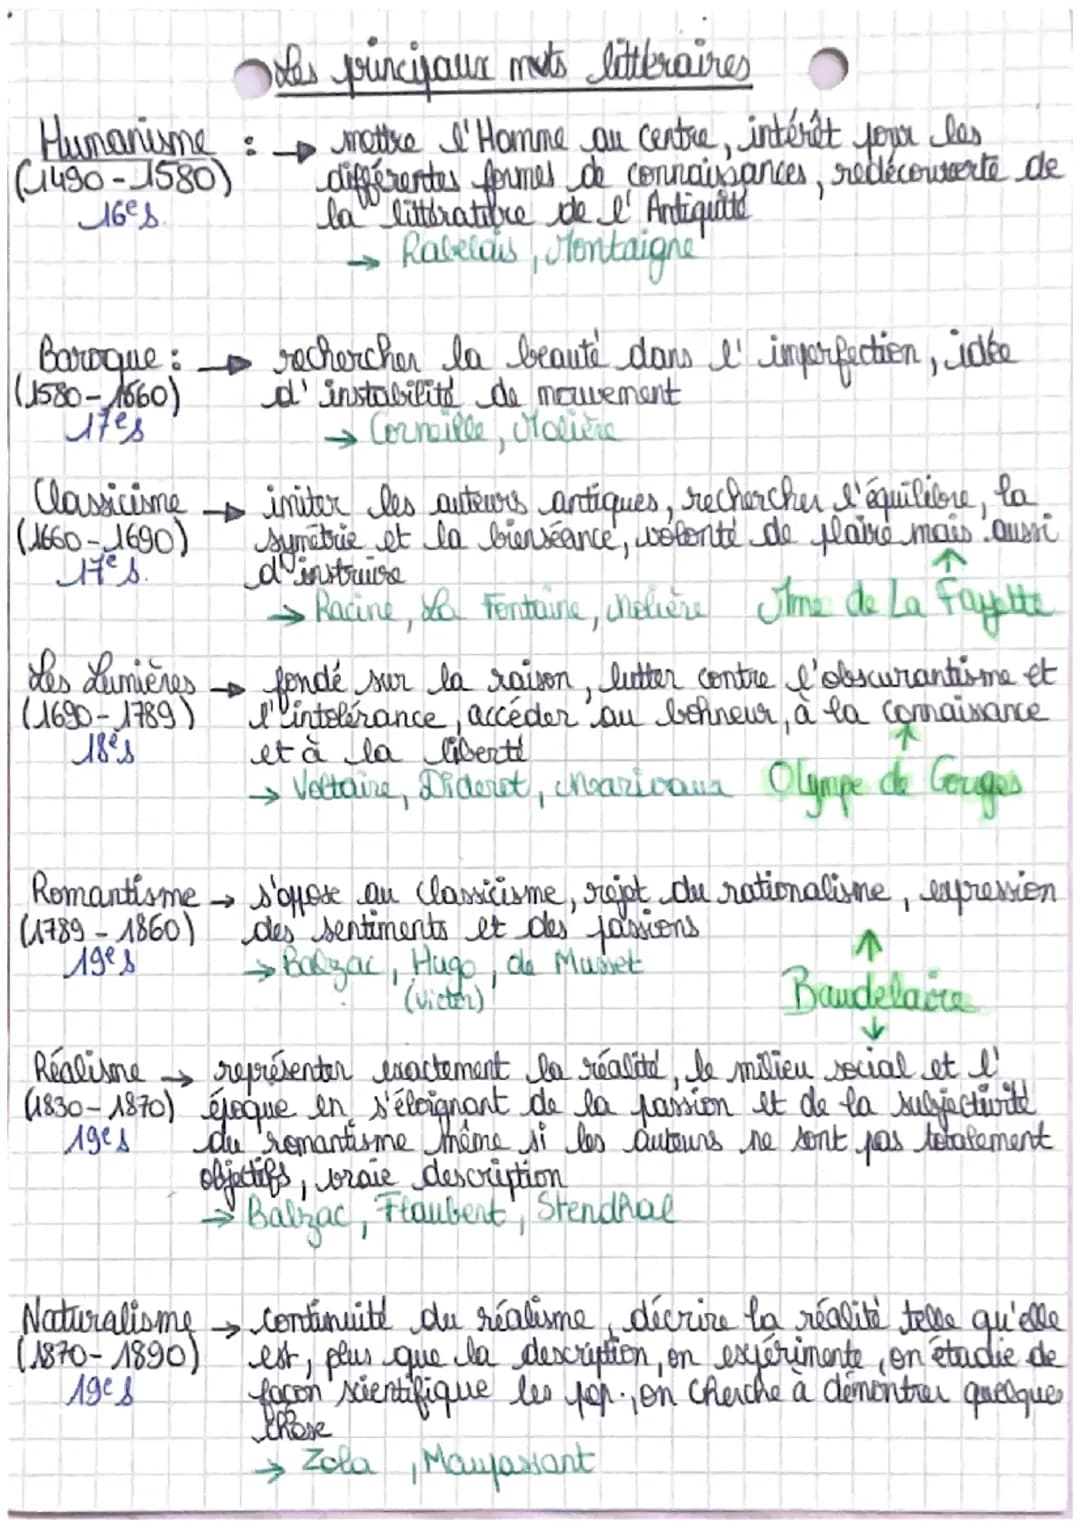 Les principaux mvts littéraires
Humanisme : → mettre l'Homme au centre, intérêt pour les
(1490-1580) différentes formes de connaissances, redécouverte de
16e s. la littérature de l'Antiquité
→ Rabelais, Montaigne
Baroque : → rechercher la beauté dans l'imperfection, idée
(1580-1660) d'instabilité de mouvement
17e s → Corneille, Molière
Classicisme → imiter les auteurs antiques, rechercher l'équilibre, la
(1660-1690) symétrie et la bienséance, volonté de plaire mais aussi
17e s. d'instruire
→ Racine, La Fontaine, Molière Mme de La Fayette
Les Lumières → fondé sur la raison, lutter contre l'obscurantisme et
(1690-1789) l'intolérance, accéder au bonheur, à la connaissance
18e s et à la liberté
→ Voltaire, Diderot, Marivaux Olympe de Gouges
Romantisme → s'oppose au classicisme, rejet du rationalisme, expression
(1789-1860) des sentiments et des passions
19e s → Balzac, Hugo, de Musset
(victor) Baudelaire
Réalisme → représenter exactement la réalité, le milieu social et l'
(1830-1870) époque en s'éloignant de la passion et de la subjectivité
19e s du romantisme même si les auteurs ne sont pas totalement
objectifs, vraie description
→ Balzac, Flaubert, Stendhal
Naturalisme → continuité du réalisme, décrire la réalité telle qu'elle
(1870-1890) est, plus que la description, on expérimente, on étudie de
19e s façon scientifique les pop., on cherche à démontrer quelque
chose
→ Zola, Maupassant